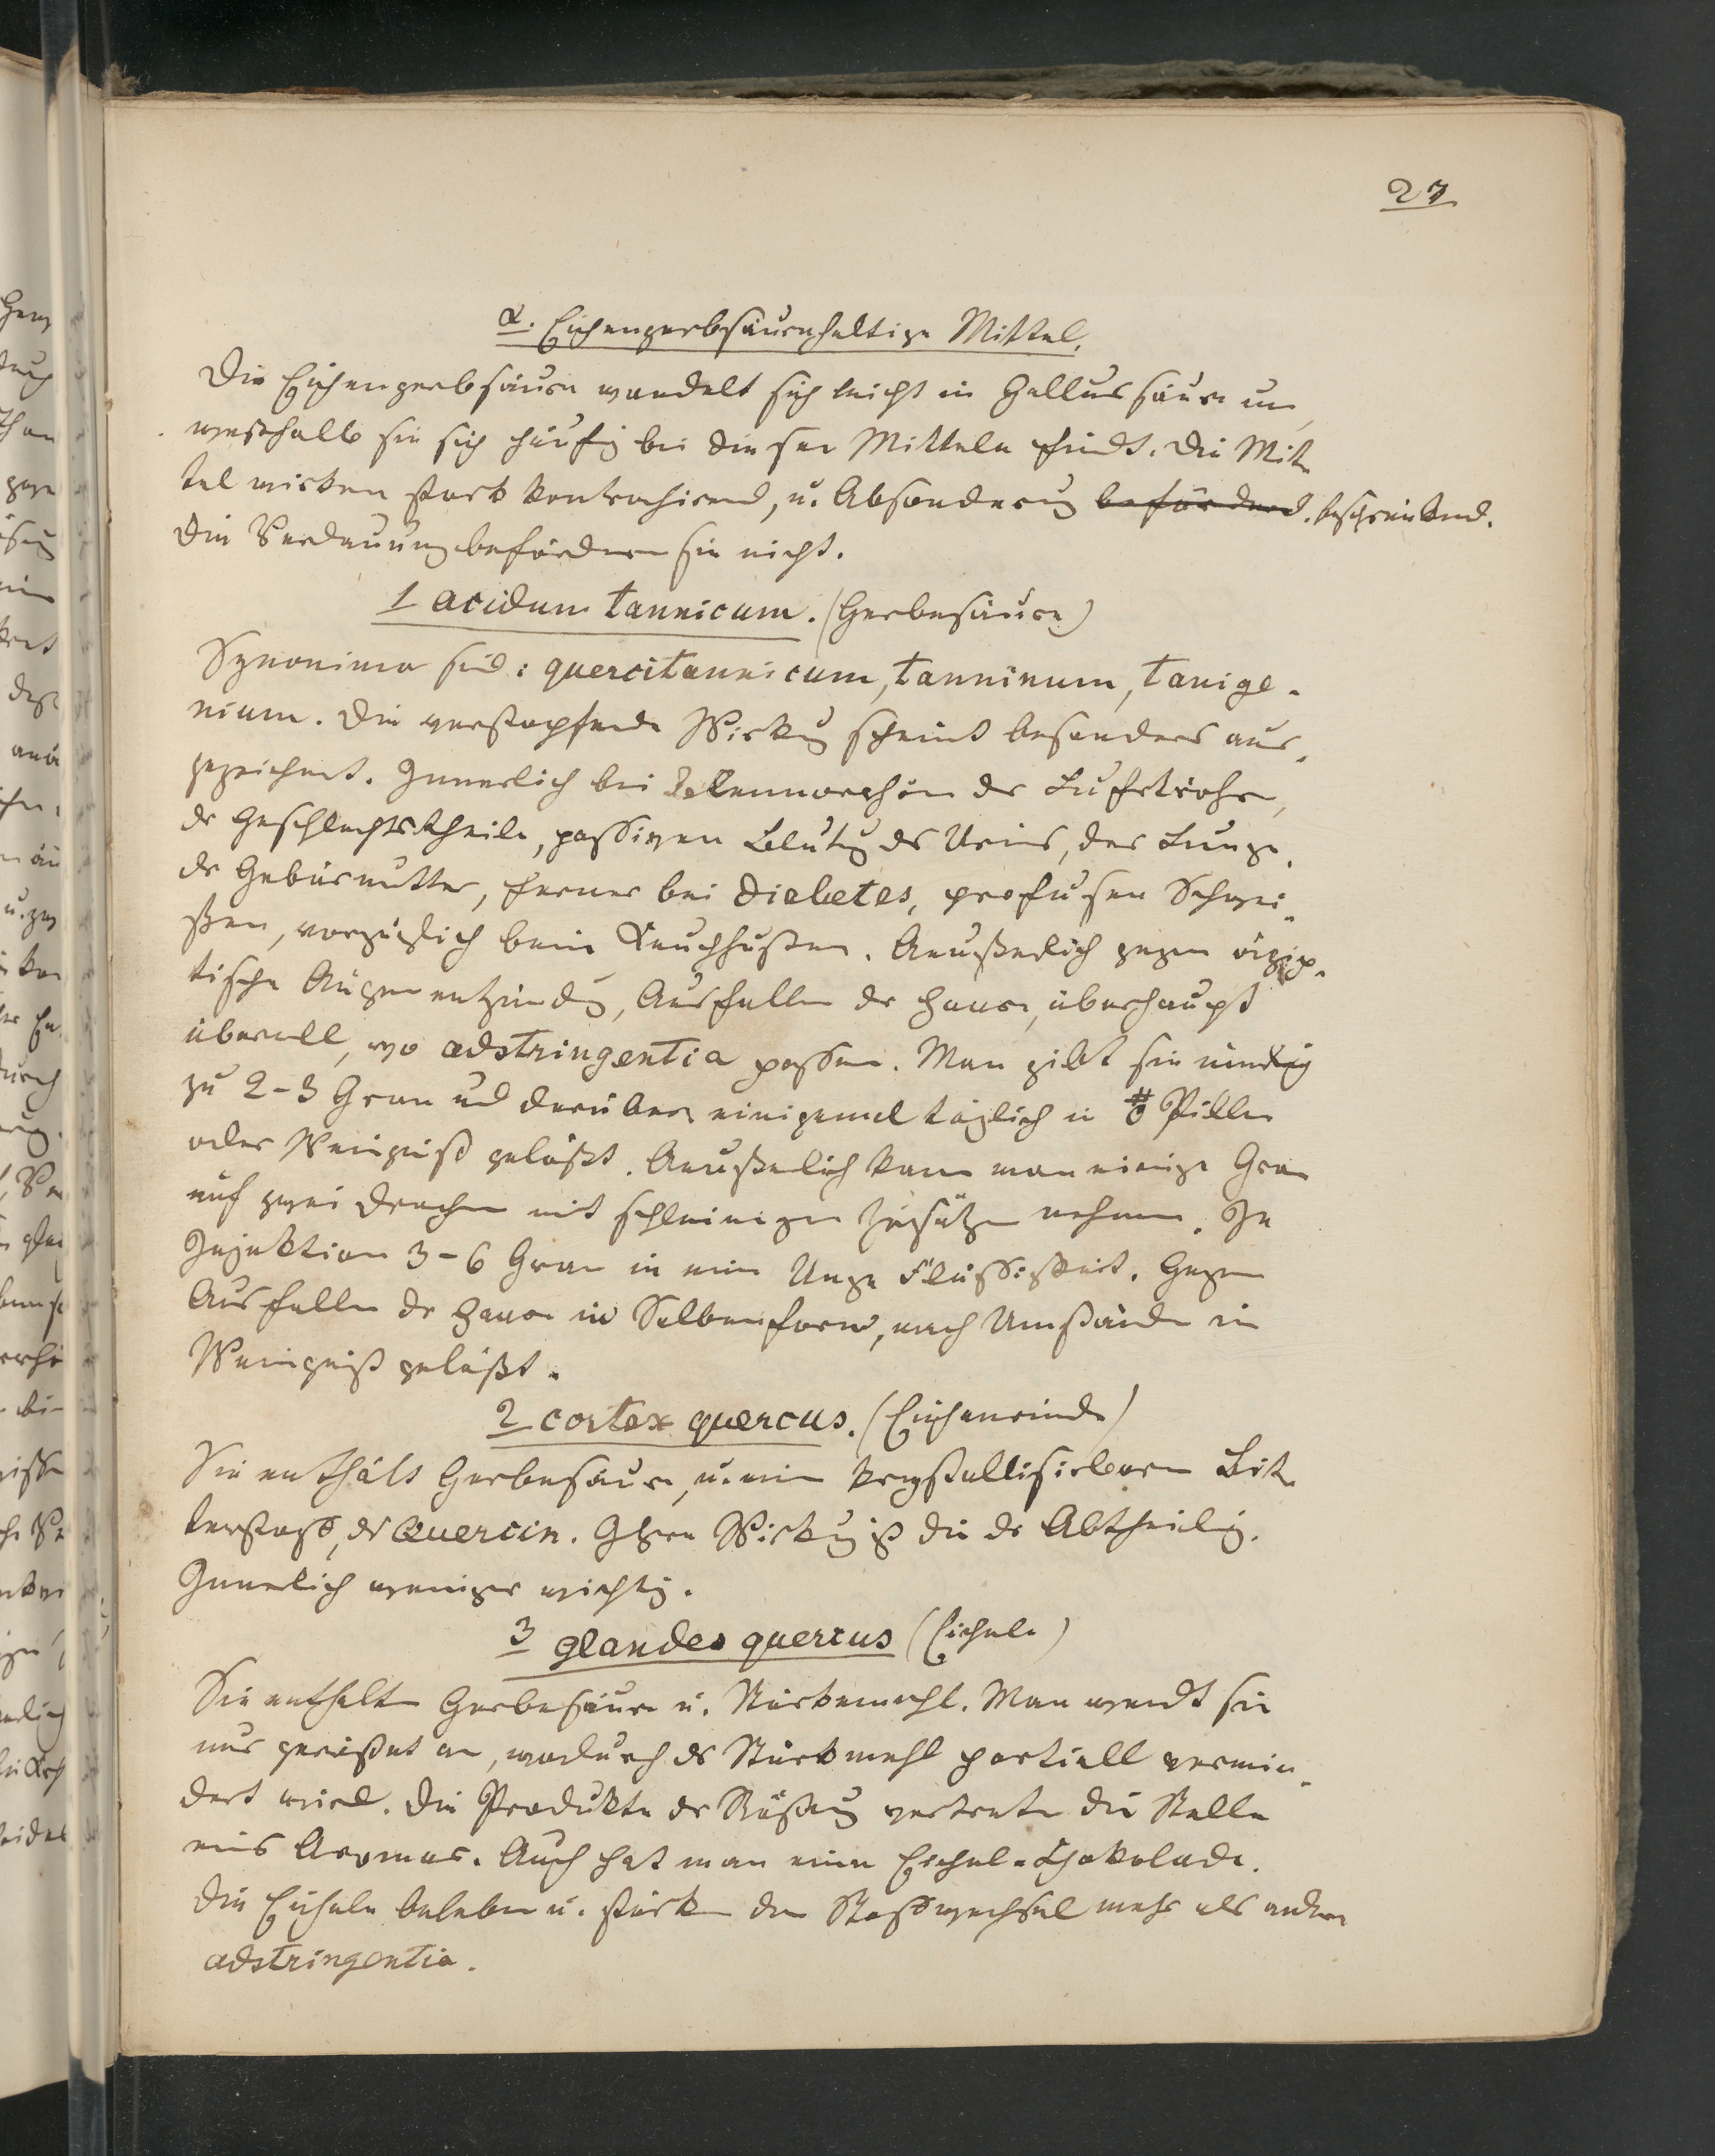 27
α. Eichengerbsäurehaltige Mittel.
Die Eichengerbsäure wandelt sich leicht in Gallussäure um,
weßhalb sie sich häufig bei diesen Mitteln findt. Die Mit-
tel wirken stark kontrahirend, u. Absonderung befördernd. beschränkend.
Die Verdauung befördern sie nicht.
1 acidum tannicum. (Gerbesäure)
Synonima sind: quercitannicum, tanninum, tanige-
nium. Die verstopfende Wirkung scheint besonders aus-
gezeichnet. Innerlich bei Blennorrhöen der Luftröhre,
der Geschlechtstheile, passiven Blutung des Urins, der Lunge,
der Gebärmutter, ferner bei Diabetes, profusen Schwei-
ßen, vorzüglich beim Keuchhusten. Aeußerlich gegen ägyp-
tische Augenentzündung, Ausfallen der Haare, überhaupt
überall, wo adstringentia passen. Man gibt sie
zu 2-3 Gran und darüber einigemal täglich in Pillen
oder Weingeist gelößt. Aeußerlich kann man einige Gran
auf zwei Drachmen mit schleimigen Zusätzen nehmen. In
Injektion 3-6 Gran in eine Unze Flüssigkeit. Gegen
Ausfallen der Haare in Salbenform, nach Umständen in
Weingeist gelößt.
2 cortex quercus. (Eichenrinde)
Sie enthält Gerbesäure, u. einen krystallisirbaren Bit-
terstoff, das Quercin. Ihre Wirkung ist die der Abtheilung.
Innerlich weniger wichtig.
3 glandes quercus (Eicheln)
Sie enthalten Gerbesäure u. Stärkemehl. Man wendt sie
nur geröstet an, wodurch das Stärkmehl partiell vermin-
dert wird. Die Produkte der Röstung vertreten die Stelle
eines Aromas. Auch hat man eine Eichel-Chokolade.
Die Eicheln beleben u. stärken den Stoffwechsel mehr als andere
adstringentia.